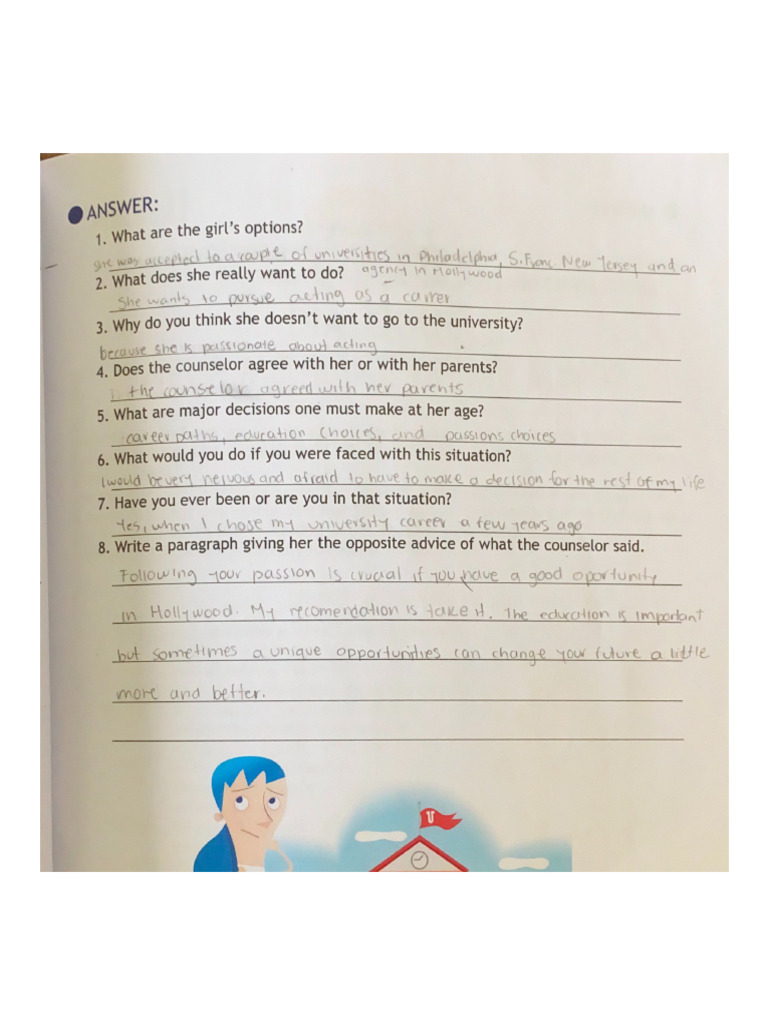 ANSWER:
1. What are the girl's options?
she was accepted to a couple of universities in Philadelphia, S.Franc. New Jersey and an
2. What does she really want to do? agency in Hollywood
She wants to pursue acting as a carrer
3. Why do you think she doesn't want to go to the university?
because she is passionate about acting
4. Does the counselor agree with her or with her parents?
the counselor agreed with her parents
5. What are major decisions one must make at her age?
career paths, education choices, and passions choices
6. What would you do if you were faced with this situation?
I would be very nervous and afraid to have to make a decision for the rest of my life
7. Have you ever been or are you in that situation?
Yes, when I chose my university career a few years ago
8. Write a paragraph giving her the opposite advice of what the counselor said.
Following your passion is crucial if you have a good oportunity
in Hollywood. My recomendation is take it. The education is important
but sometimes a unique opportunities can change your future a little
more and better.
U